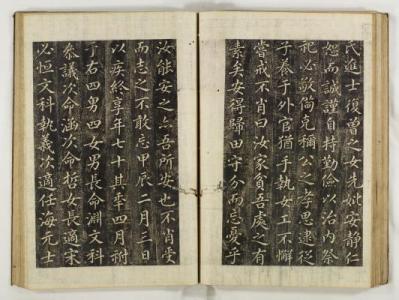 氏進士復曾之女先妣安静仁
恕而誠謹自持勤儉以治内祭
祀必敬備克稱公之孝思逮從
子養于外官猶手執女工不懈
嘗戒不肖曰汝家貧吾處之有
素矣安得歸田守分而忘憂乎
汝能安之亦吾所安也不肖受
而志之不敢忘甲辰二月三日
以疾終享年七十其季四月祔
于右四男四女男長命淵文科
叅議次命涵次命哲女長適宋
必恒文科執義次適任海元士